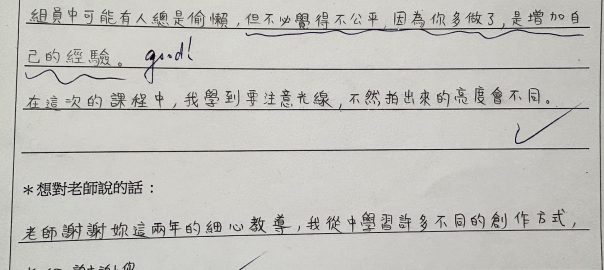 組員中可能有人總是偷懶，但不必覺得不公平，因為你多做了，是增加自
己的經驗。 good!
在這次的課程中，我學到要注意光線，不然拍出來的亮度會不同。
＊想對老師說的話：
老師謝謝妳這兩年的細心教導，我從中學習許多不同的創作方式，
謝謝您